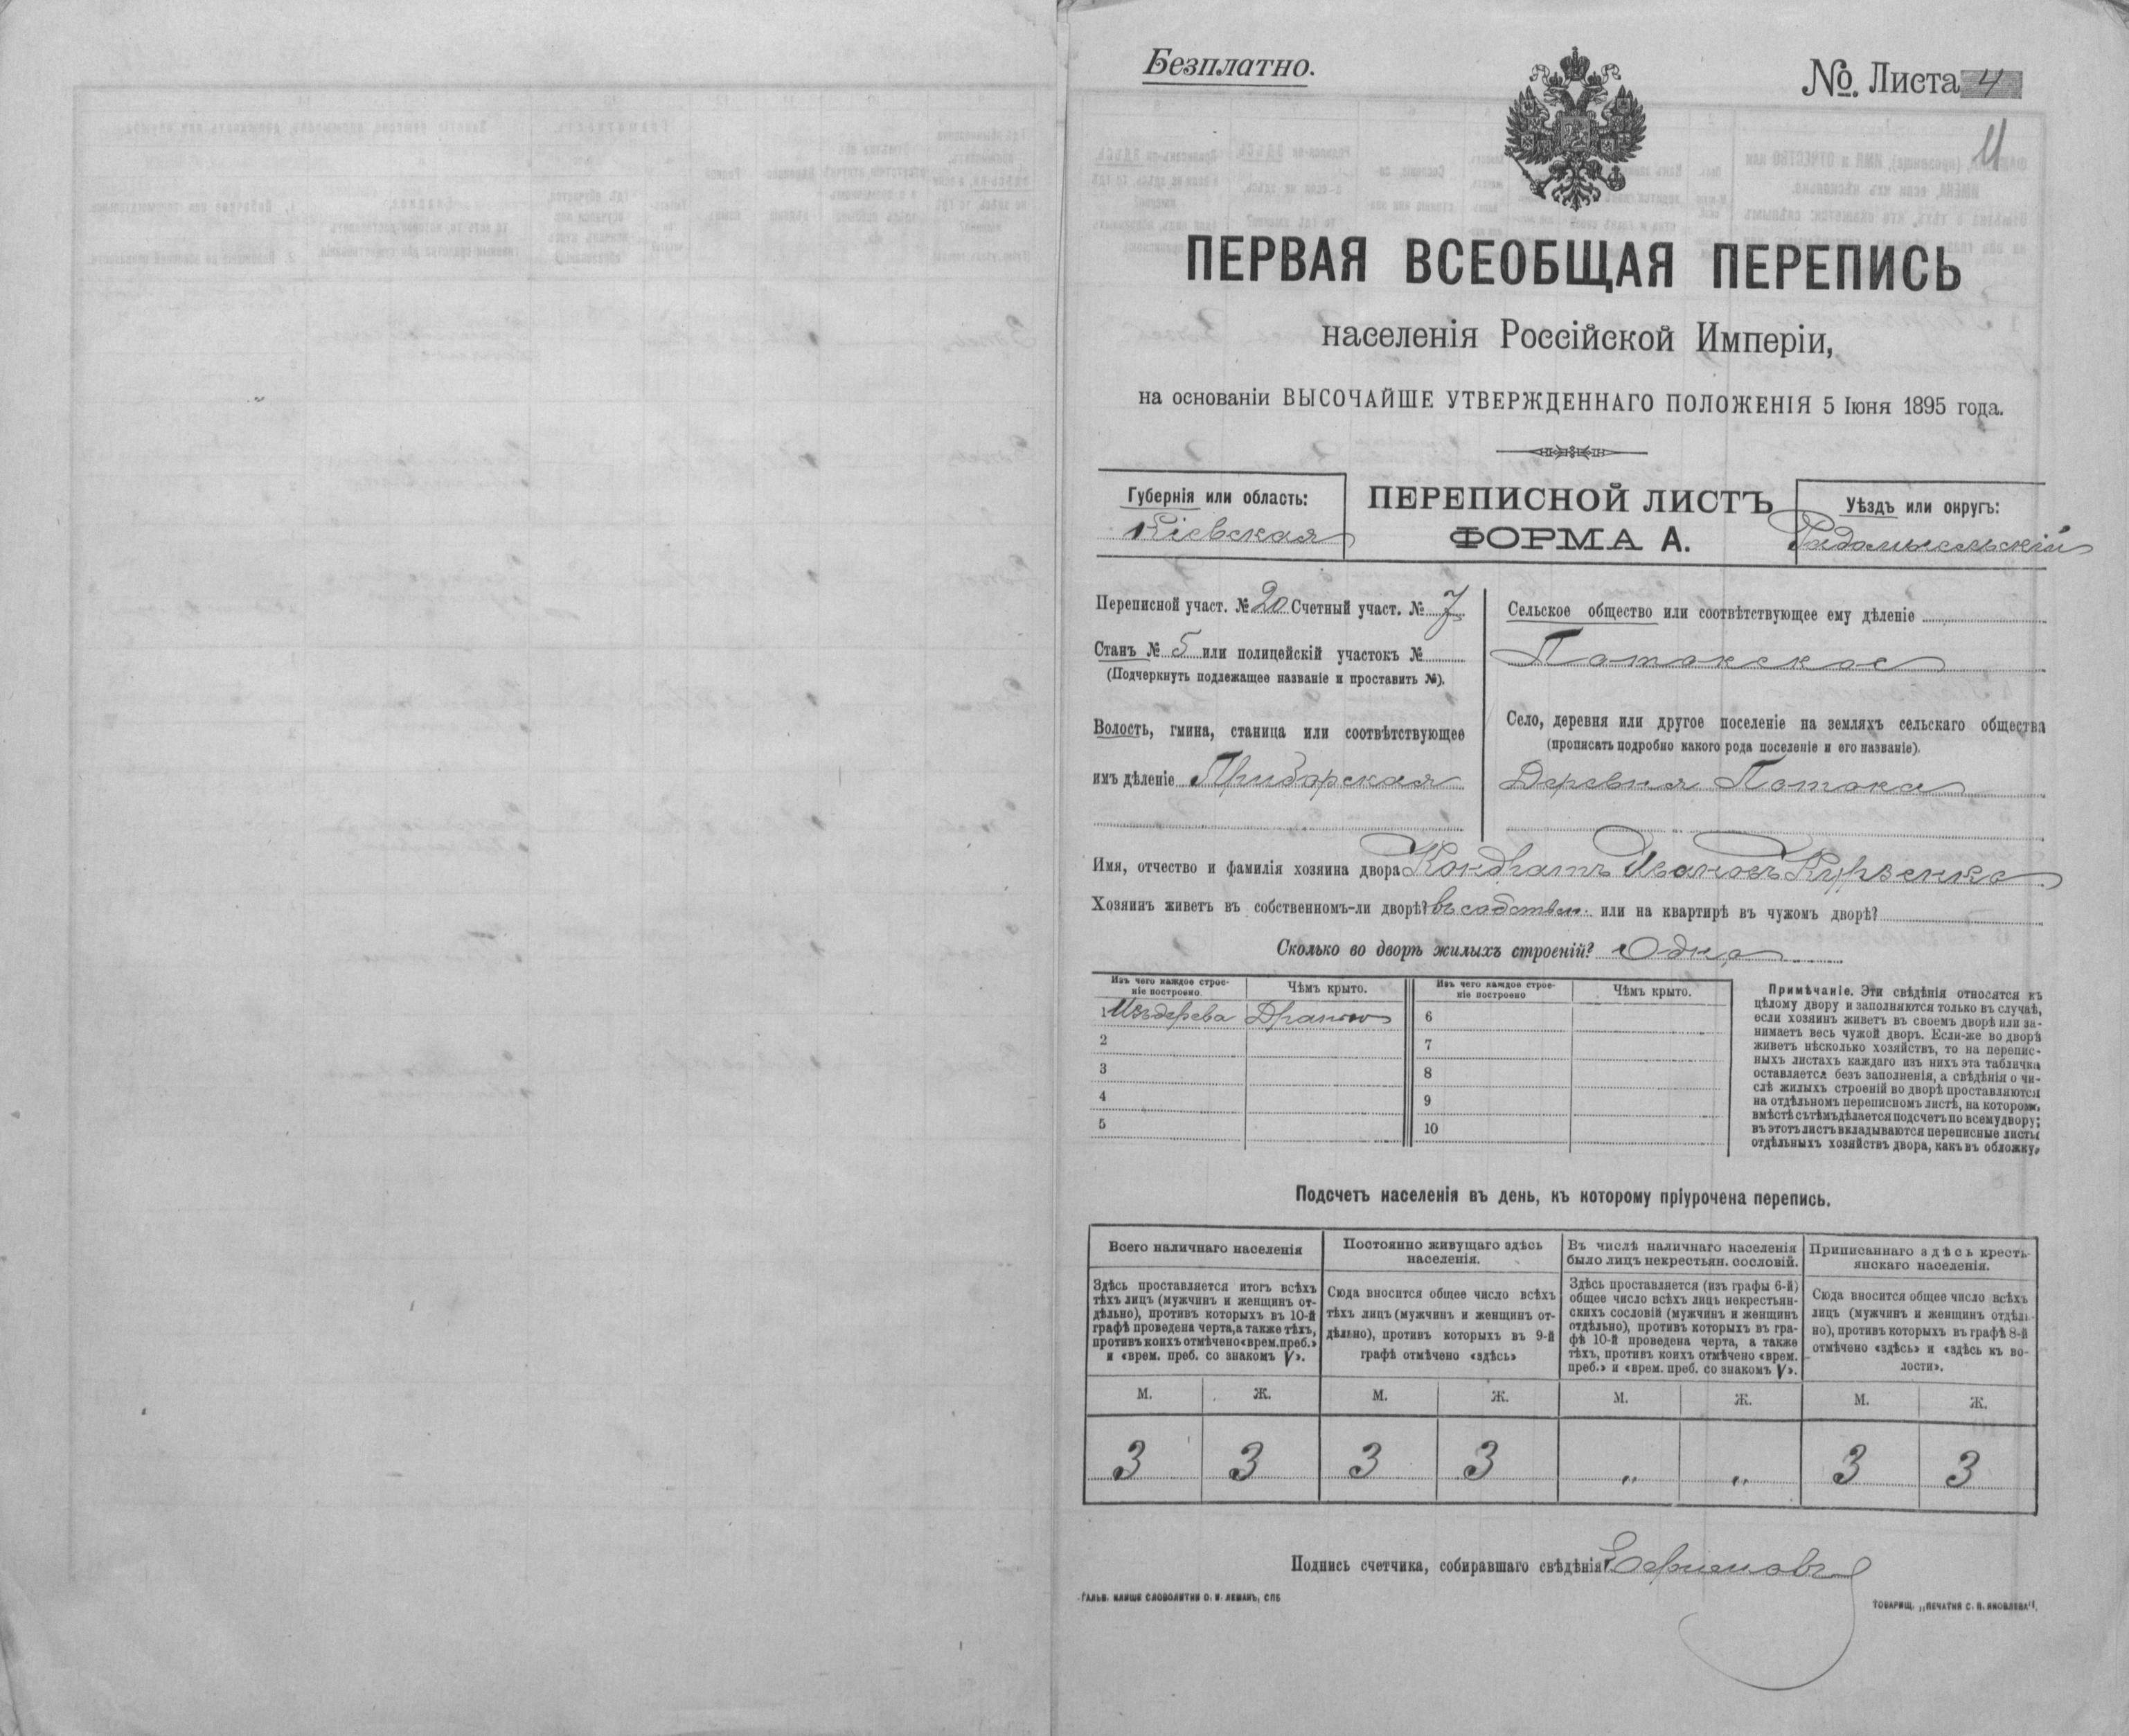 Безплатно.
№. Листа 4
11
ПЕРВАЯ ВСЕОБЩАЯ ПЕРЕПИСЬ
населенія Россійской Имперіи,
на основаніи ВЫСОЧАЙШЕ УТВЕРЖДЕННАГО ПОЛОЖЕНІЯ 5 Іюня 1895 года.
Губернія или область:
Кіевская
ПЕРЕПИСНОЙ ЛИСТЪ
ФОРМА А.
Уѣздъ или округъ:
Радомысльскій
Переписной участ. № 20 Счетный участ. № 7
Станъ № 5 или полицейскій участокъ №
(Подчеркнуть подлежащее названіе и проставить №).
Волость, гмина, станица или соотвѣтствующее
имъ дѣленіе Приборская
Сельское общество или соотвѣтствующее ему дѣленіе
Потокское
Село, деревня или другое поселеніе на земляхъ сельскаго общества
(прописать подробно какого рода поселеніе и его названіе).
Деревня Потока
Имя, отчество и фамилія хозяина двора Кондратъ Ивановъ Курзенко
Хозяинъ живетъ въ собственномъ-ли дворѣ? въ собствен. или на квартирѣ въ чужомъ дворѣ?
Сколько во дворѣ жилыхъ строеній? Одна
Изъ чего каждое строе-
ніе построено
Чѣмъ крыто.
Изъ чего каждое строе-
ніе построено
Чѣмъ крыто.
1 Изъ дерева Дранью 6
2 7
3 8
4 9
5 10
Примѣчаніе. Эти свѣдѣнія относятся къ
цѣлому двору и заполняются только въ случаѣ,
если хозяинъ живетъ въ своемъ дворѣ или за-
нимаетъ весь чужой дворъ. Если-же во дворѣ
живетъ нѣсколько хозяйствъ, то на перепис-
ныхъ листахъ каждаго изъ нихъ эта табличка
оставляется безъ заполненія, а свѣдѣнія о чи-
слѣ жилыхъ строеній во дворѣ проставляются
на отдѣльномъ переписномъ листѣ, на которомъ
вмѣстѣ съ тѣмъ дѣлается подсчетъ по всему двору;
въ этотъ листъ вкладываются переписные листы
отдѣльныхъ хозяйствъ двора, какъ въ обложку.
Подсчетъ населенія въ день, къ которому пріурочена перепись.
Всего наличнаго населенія
Здѣсь проставляется итогъ всѣхъ
тѣхъ лицъ (мужчинъ и женщинъ от-
дѣльно), противъ которыхъ въ 10-й
графѣ проведена черта, а также тѣхъ,
противъ коихъ отмѣчено «врем. преб.»
и «врем. преб. со знакомъ V».
Постоянно живущаго здѣсь
населенія.
Сюда вносится общее число всѣхъ
тѣхъ лицъ (мужчинъ и женщинъ от-
дѣльно), противъ которыхъ въ 9-й
графѣ отмѣчено «здѣсь»
Въ числѣ наличнаго населенія
было лицъ некрестьян. сословій.
Здѣсь проставляется (изъ графы 6-й)
общее число всѣхъ лицъ некрестьян-
скихъ сословій (мужчинъ и женщинъ
отдѣльно), противъ которыхъ въ гра-
фѣ 10-й проведена черта, а также
тѣхъ, противъ коихъ отмѣчено «врем.
преб.» и «врем. преб. со знакомъ V».
Приписаннаго здѣсь кресть-
янскаго населенія.
Сюда вносится общее число всѣхъ
лицъ (мужчинъ и женщинъ отдѣль-
но), противъ которыхъ въ графѣ 8-й
отмѣчено «здѣсь» и «здѣсь къ во-
лости».
М. Ж. М. Ж. М. Ж. М. Ж.
3 3 3 3 „ „ 3 3
Подпись счетчика, собиравшаго свѣдѣнія: Ефимовъ
ГАЛЬВ. КЛИШЕ СЛОВОЛИТНИ О. И. ЛЕМАНЪ, СПБ
ТОВАРИЩ. „ПЕЧАТНЯ С. П. ЯКОВЛЕВА".